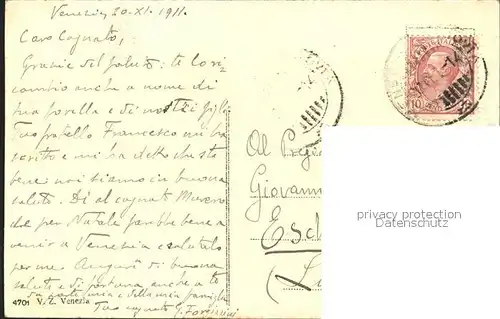 Venezia, 20-XI. 1911.
Caro Cognato,
Grazie del saluto: te lo ri
cambio anche a nome di
tua sorella e di nostri figli
Tuo fratello Francesco mi ha
scritto e mi ha detto che sta
bene noi stiamo in buona
salute. Di al cognato
che per Natale farebbe bene a
venir a Venezia e salutalo
per me Auguri di buona
salute e di fortuna anche a te
da parte mia e della mia famiglia
Tuo cognato G.
4701 V. Z. Venezia
10
Al Pregi
Giovann
Esch
(Lu
privacy protection
Datenschutz